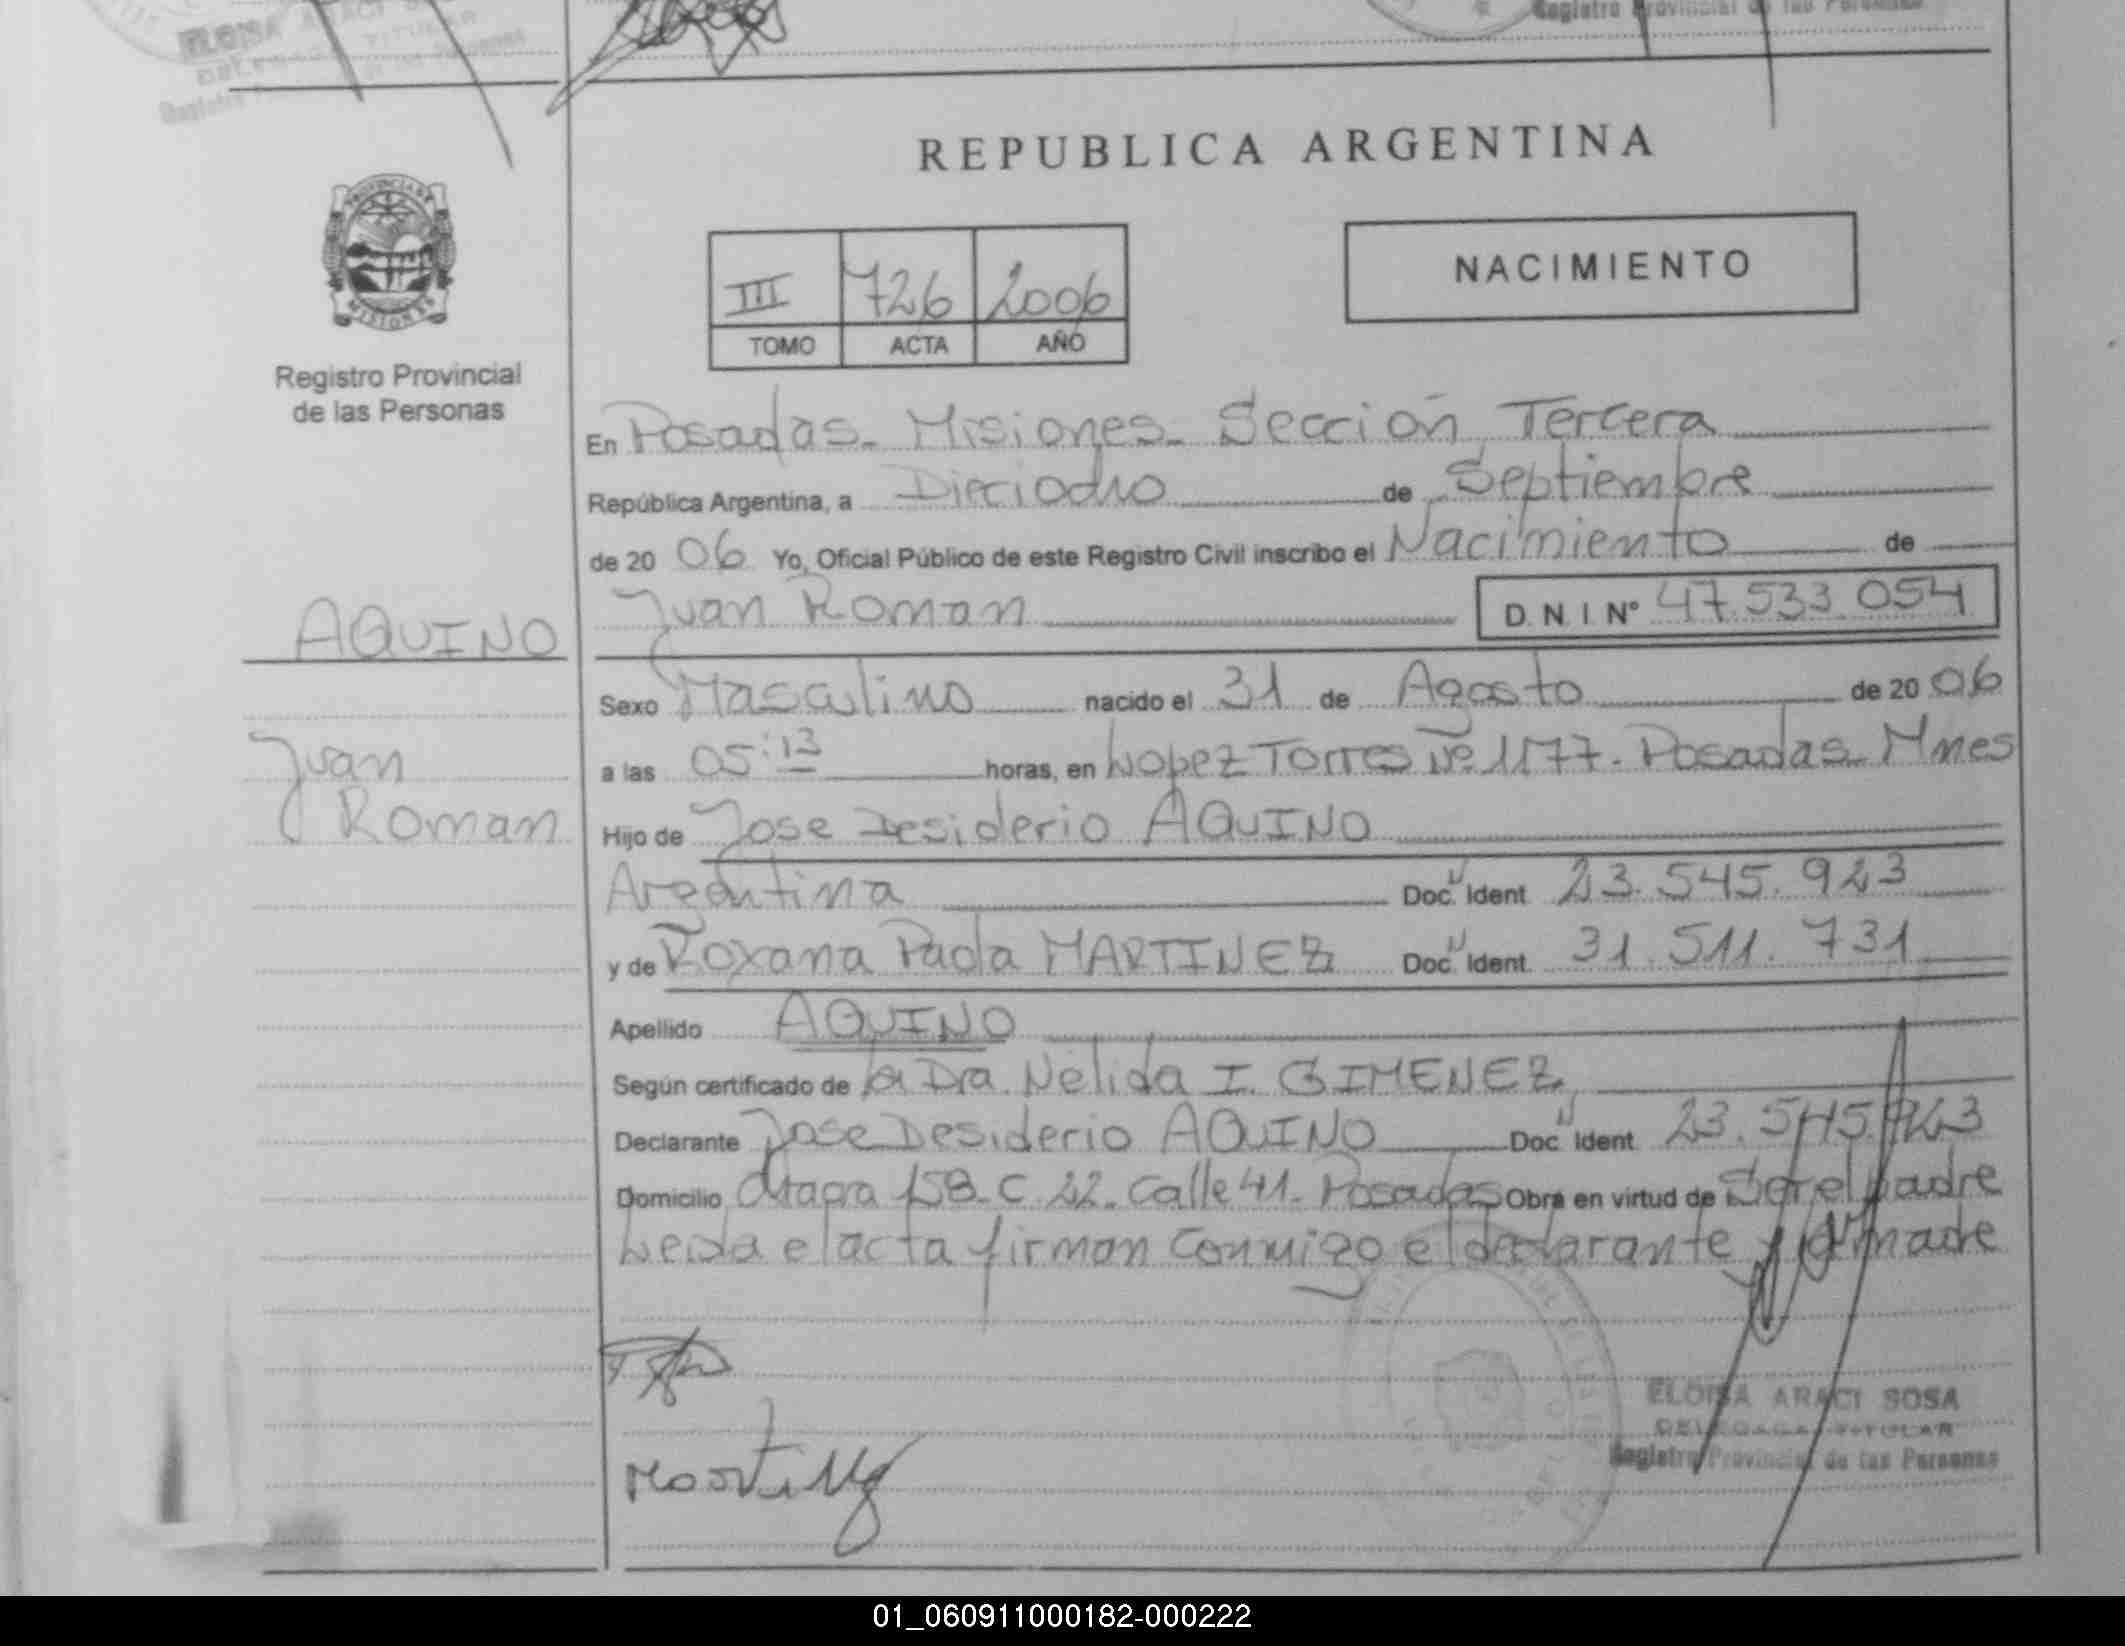 ELOISA ARACI
TITULAR
Registro Provincial de las Personas
REPUBLICA ARGENTINA
PROVINCIA DE
MISIONES
Registro Provincial
de las Personas
III 726 2006
TOMO ACTA AÑO
NACIMIENTO
En Posadas - Misiones - Sección Tercera
República Argentina, a Dieciocho de Septiembre
de 20 06 Yo, Oficial Público de este Registro Civil inscribo el Nacimiento de
Juan Roman D.N.I. N° 47.533.054
AQUINO
Juan
Roman
Sexo Masculino nacido el 31 de Agosto de 20 06
a las 05:13 horas, en Lopez Torres Nº 1177 - Posadas - Mnes
Hijo de Jose Desiderio AQUINO
Argentina Doc. Ident. 23.545.923
y de Roxana Paola MARTINEZ Doc. Ident. 31.511.731
Apellido AQUINO
Según certificado de la Dra. Nélida I. GIMENEZ
Declarante Jose Desiderio AQUINO Doc. Ident. 23.545.923
Domicilio 158 - C. 22 - Calle 41 - Posadas Obra en virtud de Ser el padre
Leida el acta firman conmigo el declarante y la madre
ELOISA ARACI SOSA
DELEGADA TITULAR
Registro Provincial de las Personas
01_060911000182-000222